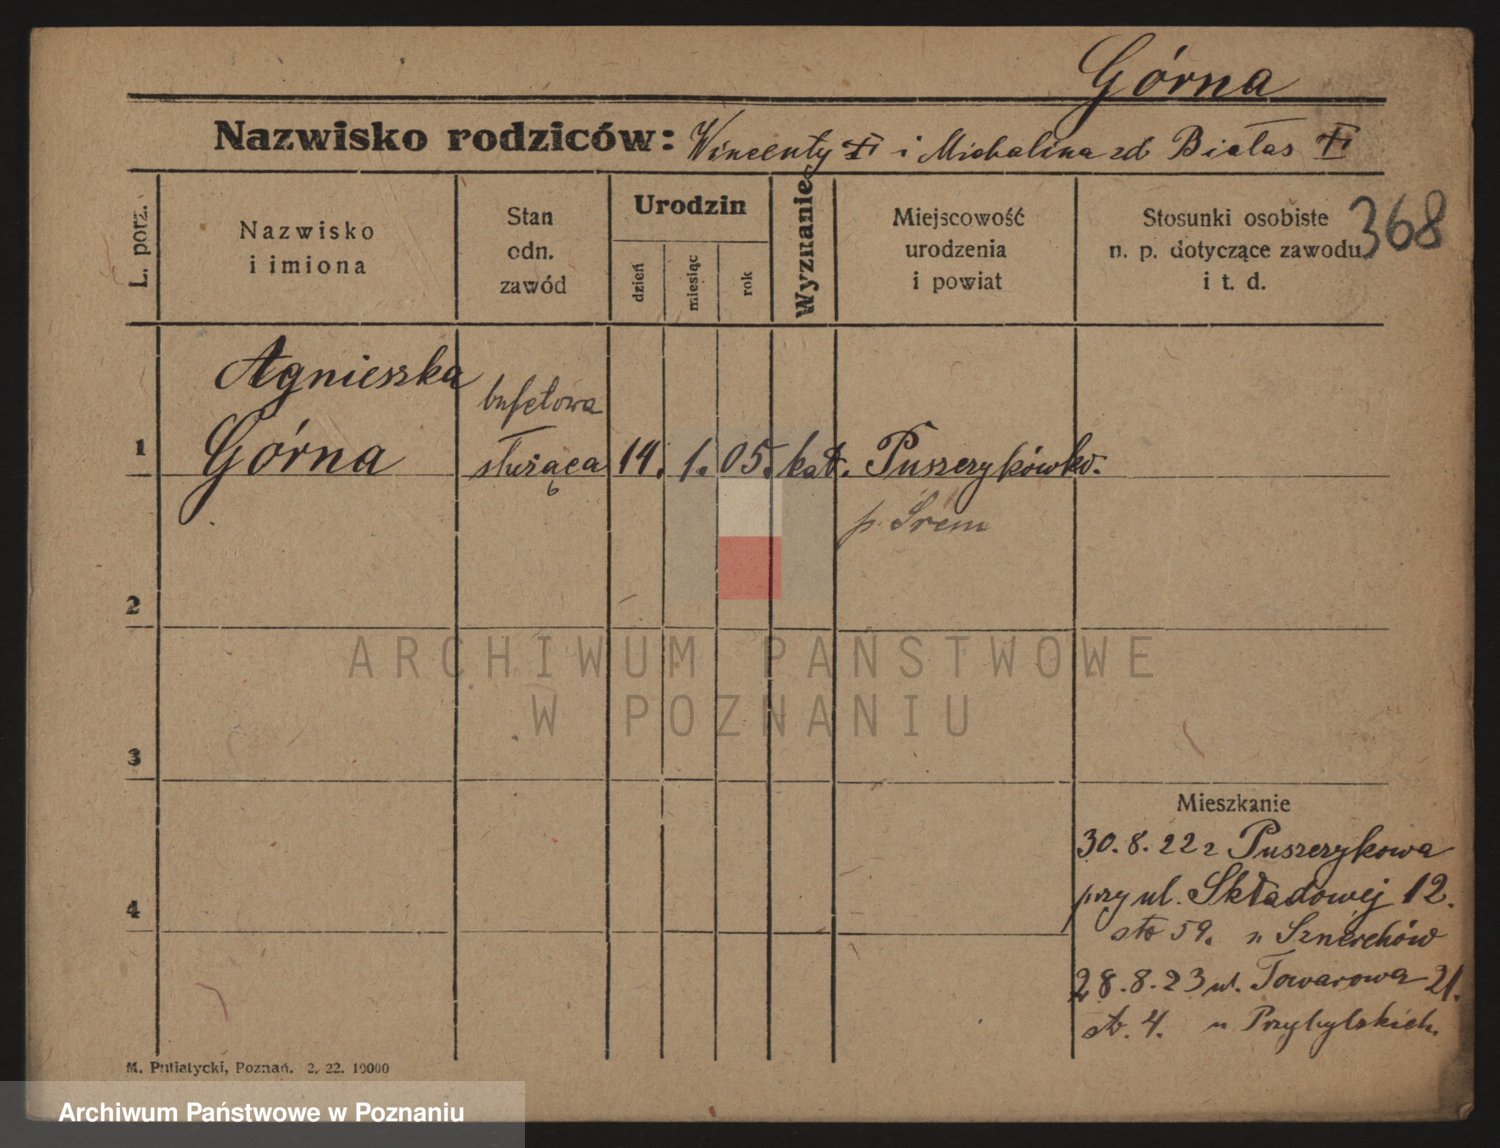 Górna
Nazwisko rodziców: Wincenty i Michalina zd Białas
L. porz.
Nazwisko
i imiona
Stan
odn.
zawód
Urodzin
dzień
miesiąc
rok
Wyznanie
Miejscowość
urodzenia
i powiat
Stosunki osobiste
n. p. dotyczące zawodu
i t. d.
368
Agnieszka
bufetowa
1 Górna służąca 14. 1. 05. kat. Puszczykówko.
p. Śrem
2
ARCHIWUM PAŃSTWOWE
W POZNANIU
3
Mieszkanie
30.8.22 z Puszczykowa
przy ul. Składowej 12.
4
59. u
28.8.23 ul. Towarowa 21.
4. u Przybylskich.
M. Putiatycki, Poznań. 2. 22. 10000
Archiwum Państwowe w Poznaniu